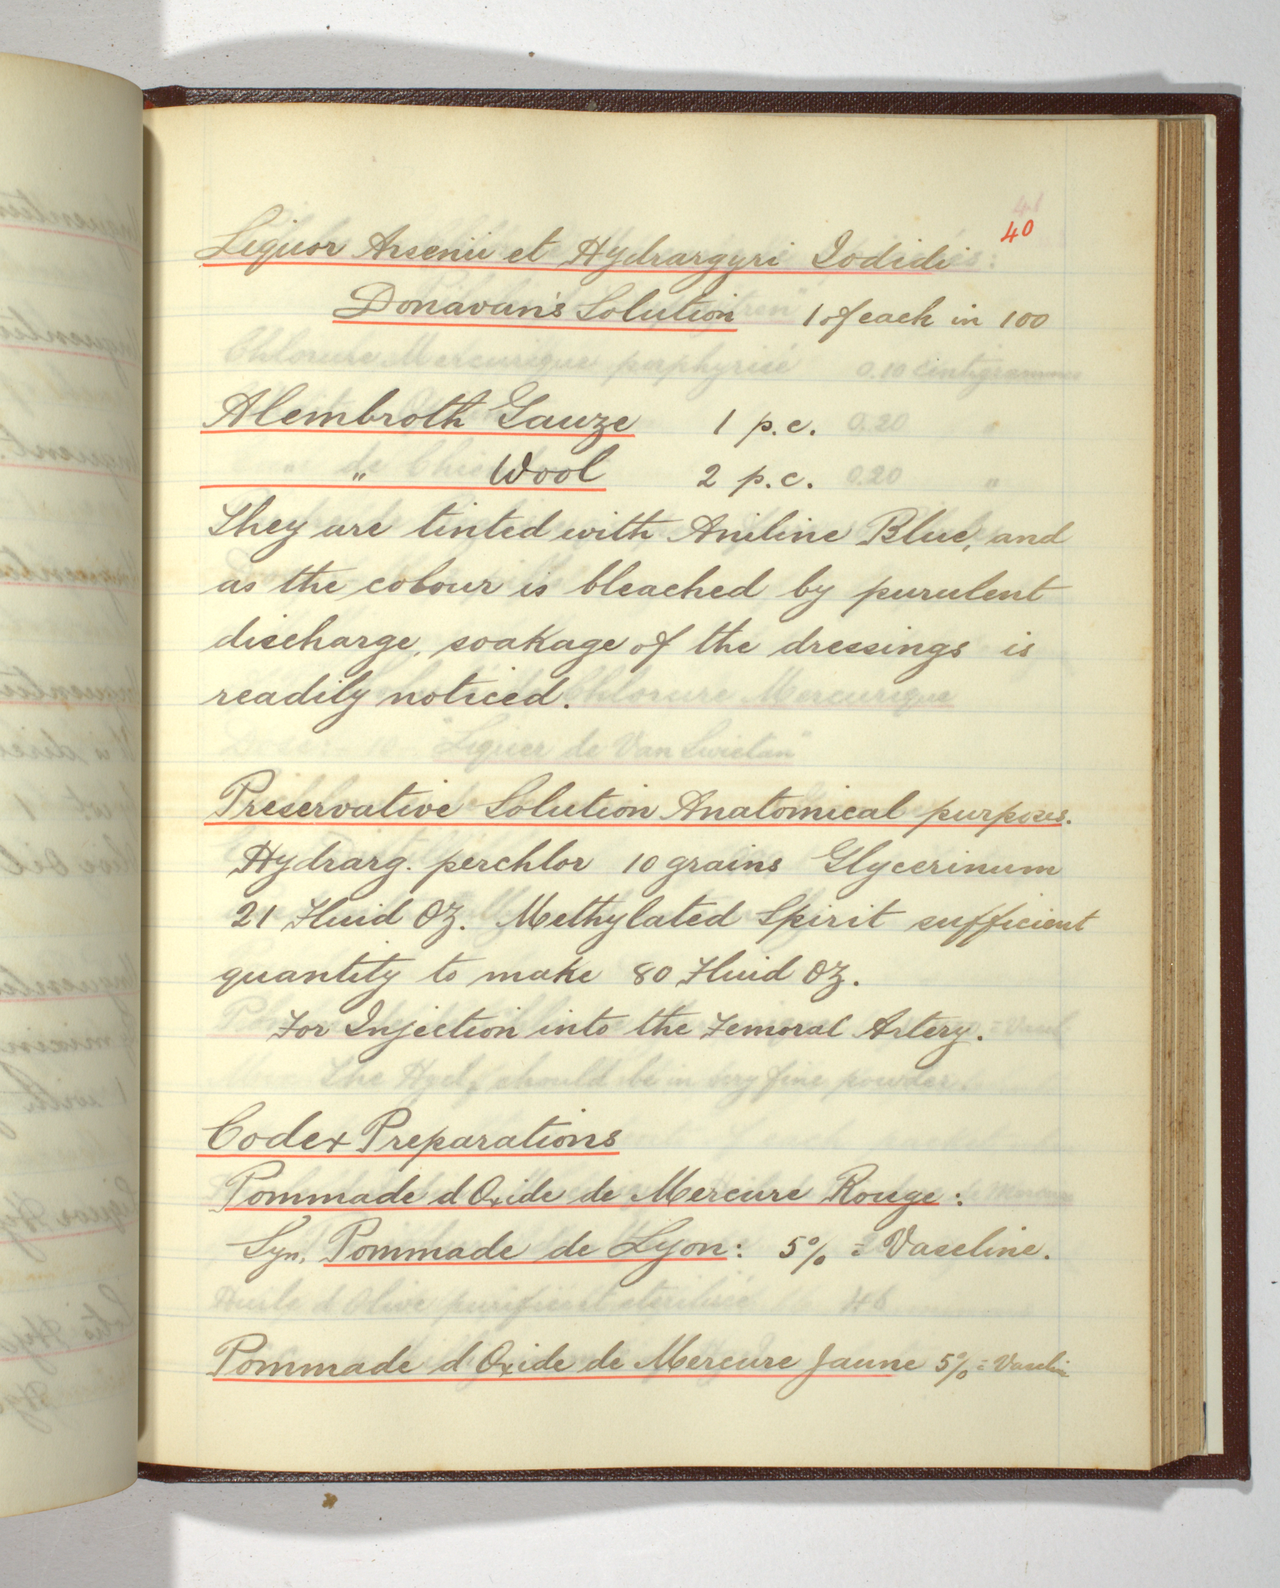 40
Liquor Arsenii et Hydrargyri Iodidi
Donavan's Solution 1 of each in 100
Alembroth Gauze 1 p.c.
" Wool 2 p.c.
They are tinted with Aniline Blue, and
as the colour is bleached by purulent
discharge, soakage of the dressings is
readily noticed.
Preservative Solution Anatomical purposes.
Hydrarg. perchlor 10 grains Glycerinum
21 Fluid OZ. Methylated Spirit sufficient
quantity to make 80 Fluid OZ.
For Injection into the Femoral Artery.
Codex Preparations
Pommade d Oxide de Mercure Rouge:
Syn. Pommade de Lyon: 5% = Vaseline.
Pommade d Oxide de Mercure Jaune 5% = Vaselin